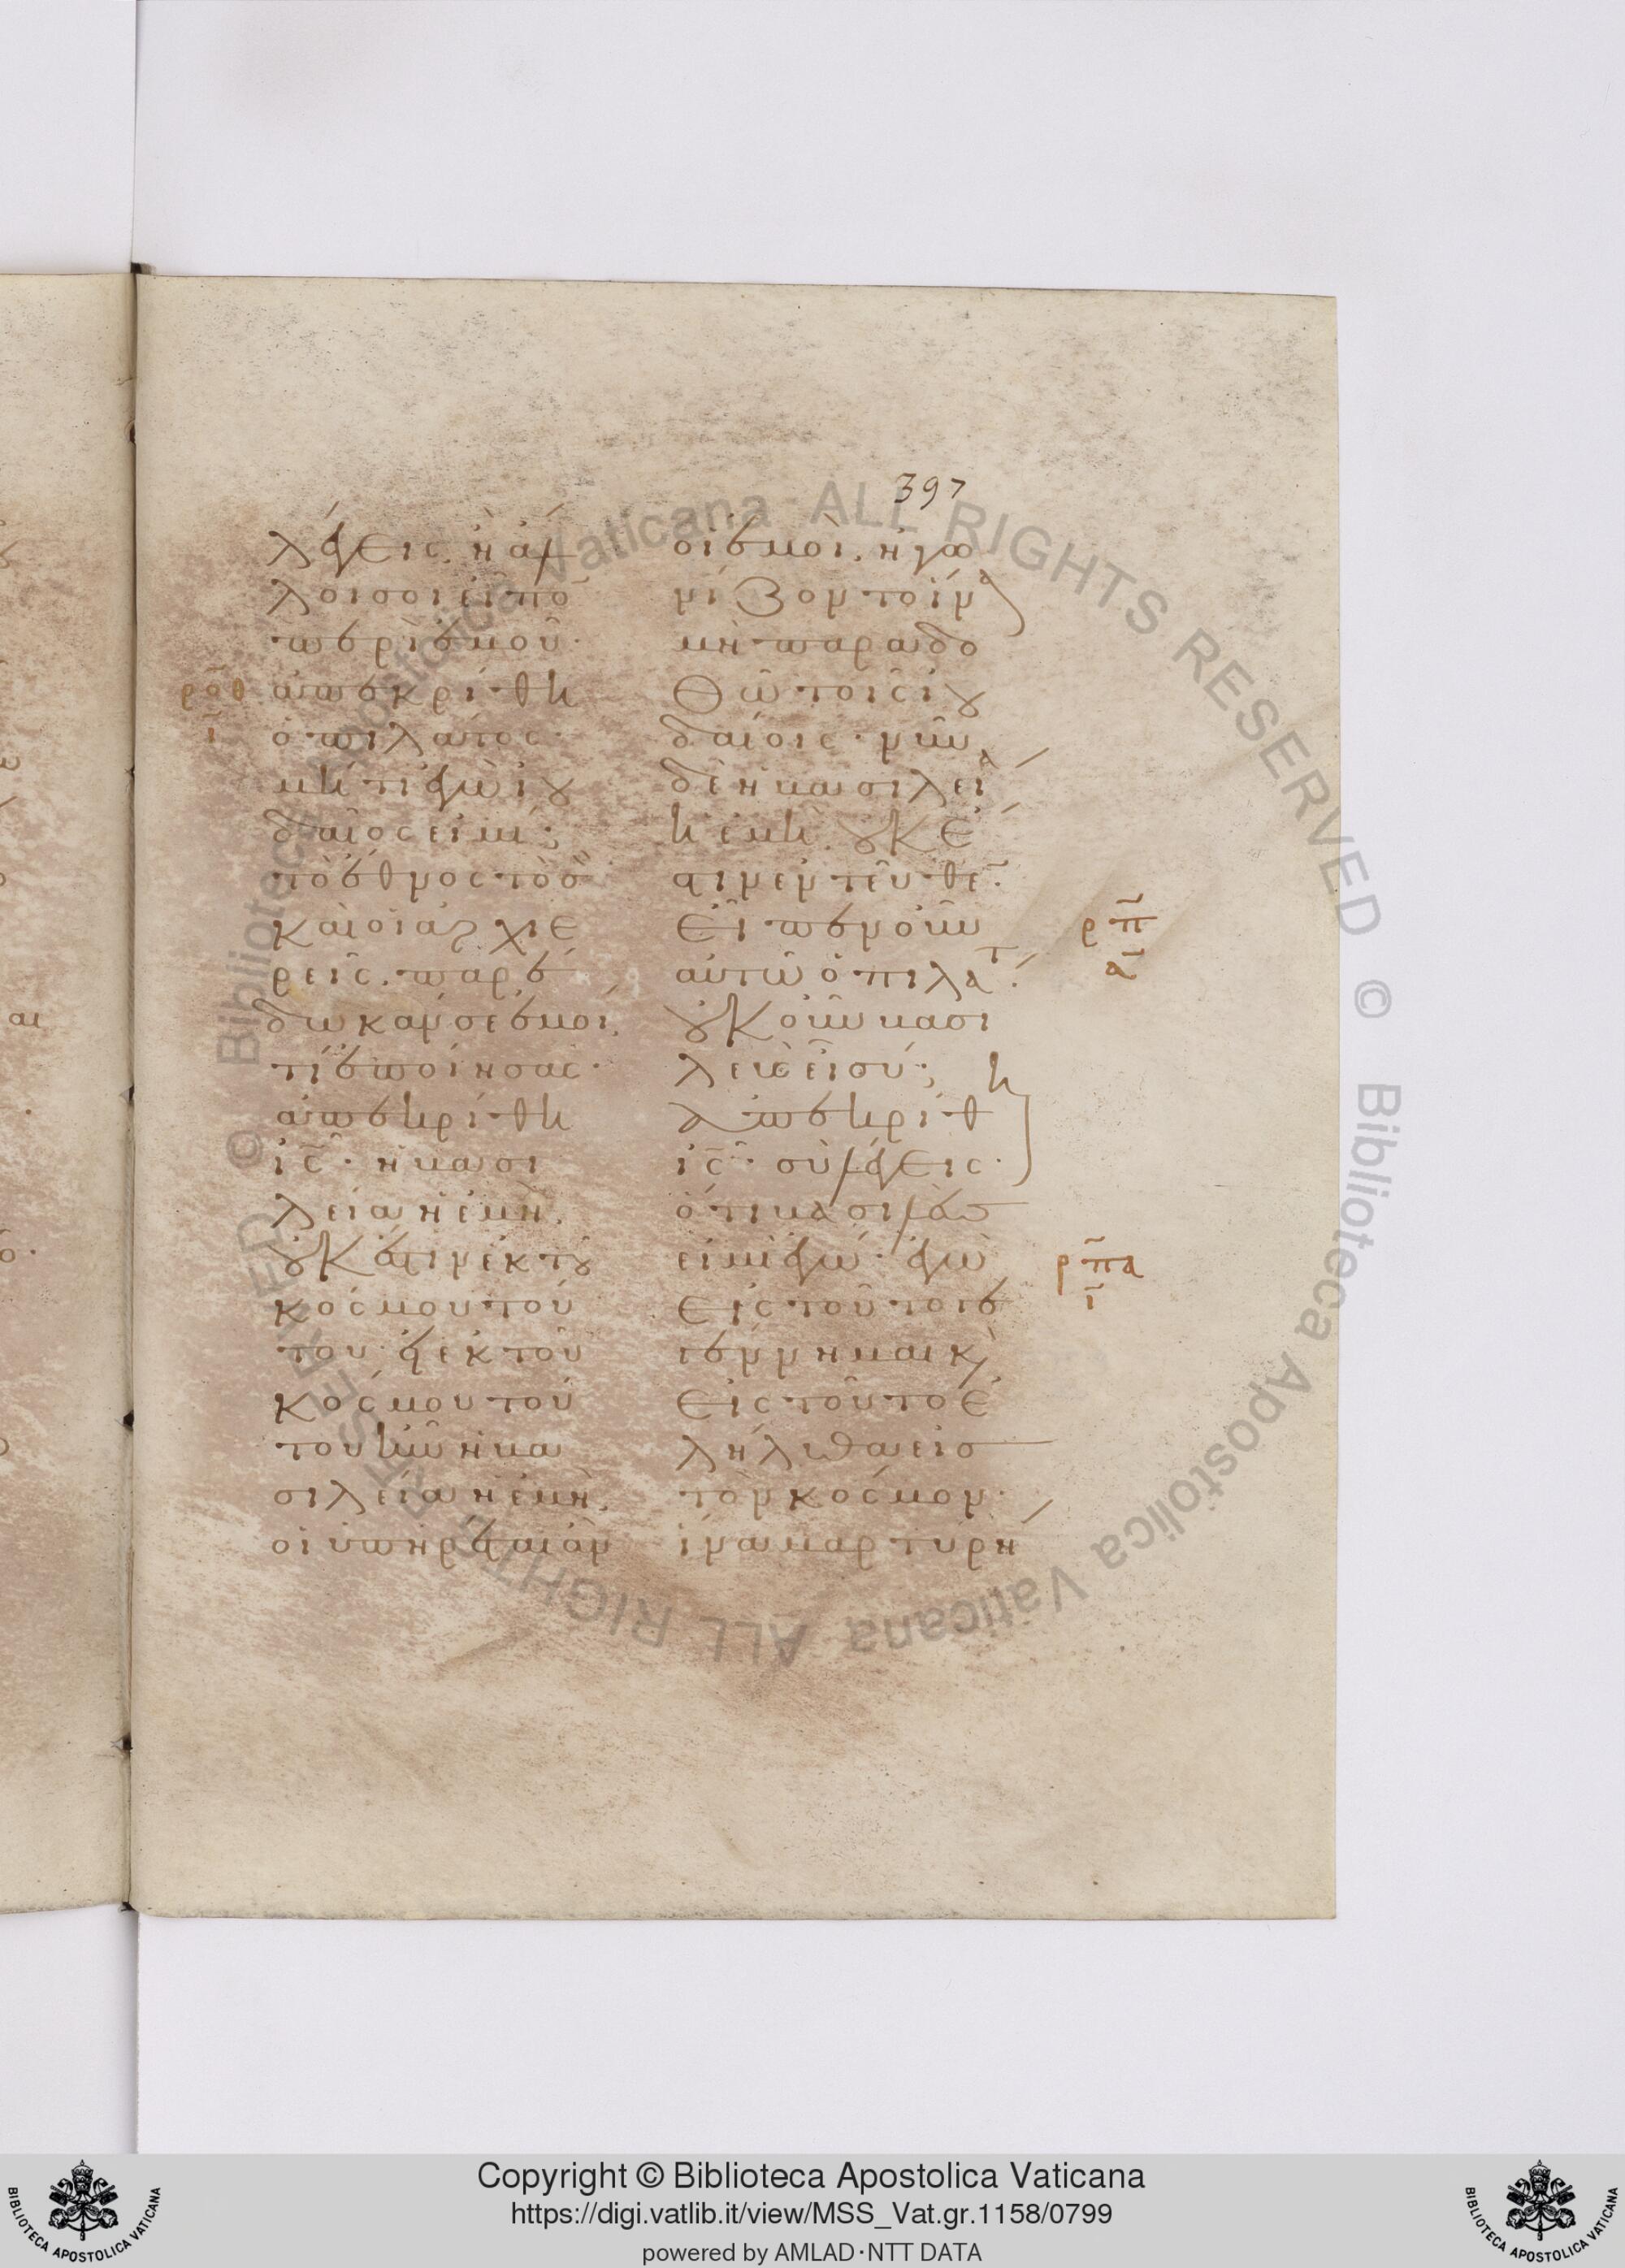 397
λέγεις, ἢ ἄλ
λοι σοι εἶπο̅
περὶ ἐμοῦ·
ρ̅ο̅θ ἀπεκρίθη
ι̅ ὁ πιλάτος·
μήτι ἐγὼ ἰου
δαῖός εἰμι;
τὸ ἔθνος τὸ σὸν
καὶ οἱ ἀρχιε
ρεῖς, παρέ
δωκάν σε ἐμοί,
τί ἐποίησας·
ἀπεκρίθη
ι̅ς̅· ἡ βασι
λεία ἡ ἐμὴ,
οὐκ ἔστιν ἐκ του
κόσμου τού
του· εἰ ἐκ τοῦ
κόσμου τού
του ἦν ἡ βα
σιλεία ἡ ἐμὴ,
οἱ ὑπηρέται ἂν
οἱ ἐμοὶ, ἠγω
νίζοντο ἵνα
μὴ παραδο
θῶ τοῖς ἰου
δαίοις· νῦν
δὲ ἡ βασιλεία
ἡ ἐμὴ, οὐκ ἔ
στιν ἐντεῦθε̅·
εἶπεν οὖν ρ̅π̅
αὐτῷ ὁ πιλάτ· α̅
οὐκοῦν βασι
λεὺς εἶ σύ;
ἀπεκρίθη
ι̅ς̅· σὺ λέγεις·
ὅτι βασιλεὺσ
εἰμὶ ἐγώ· ἐγὼ ρ̅π̅α
εἰς τοῦτο γε ι̅
γέννημαι κ
εἰς τοῦτο ἐ
λήλυθα εἰσ
τὸν κόσμον·
ἵνα μαρτυρή
Copyright © Biblioteca Apostolica Vaticana
https://digi.vatlib.it/view/MSS_Vat.gr.1158/0799
powered by AMLAD·NTT DATA
BIBLIOTECA APOSTOLICA VATICANA
BIBLIOTECA APOSTOLICA VATICANA
© Biblioteca Apostolica Vaticana ALL RIGHTS RESERVED © Biblioteca Apostolica Vaticana ALL RIGHTS RESERVED